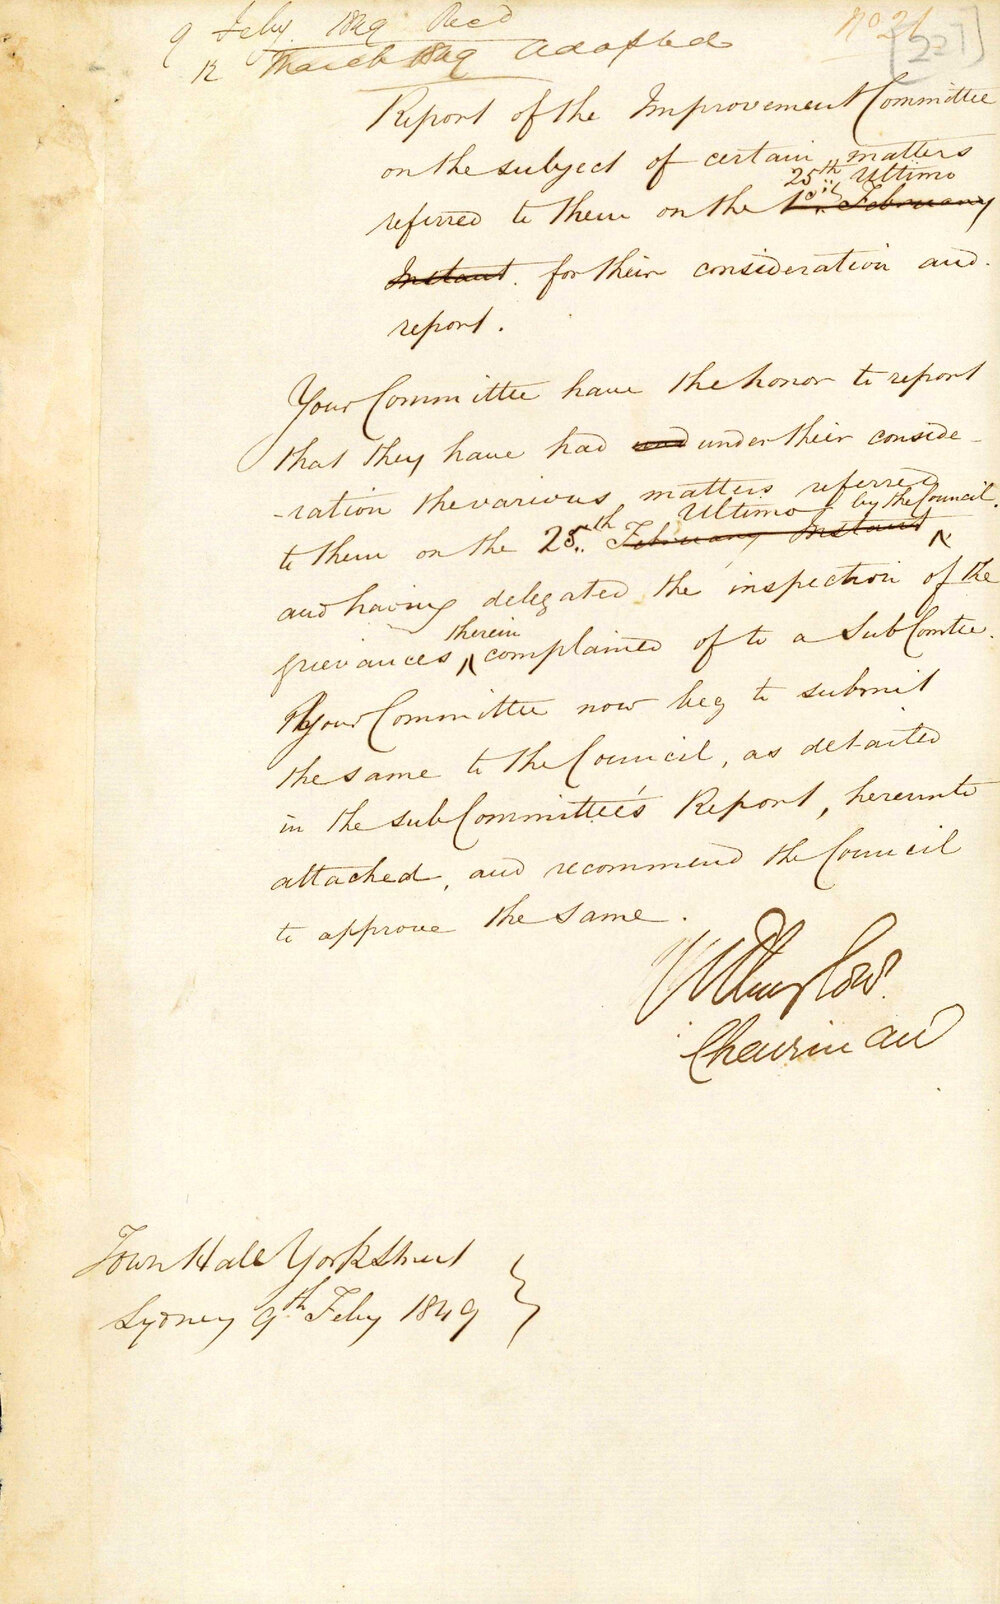 9 Feby. 1849 Recd
12 March 1849 Adopted
No 21
[227]
Report of the Improvement Committee
on the subject of certain matters
25th Ultimo
referred to them on the 1st February
Instant. for their consideration and
report.
Your Committee have the honor to report
that they have had und under their conside-
-ration the various matters referred
Ultimo by the Council.
to them on the 25th February Instant
and having delegated the inspection of the
therein
grievances complained of to a Sub Comtee.
Your Committee now beg to submit
the same to the Council, as detailed
in the sub Committee's Report, hereunto
attached, and recommend the Council
to approve the same.
Thurlow
Chairman
Town Hall York Street
Sydney 9th Feby 1849